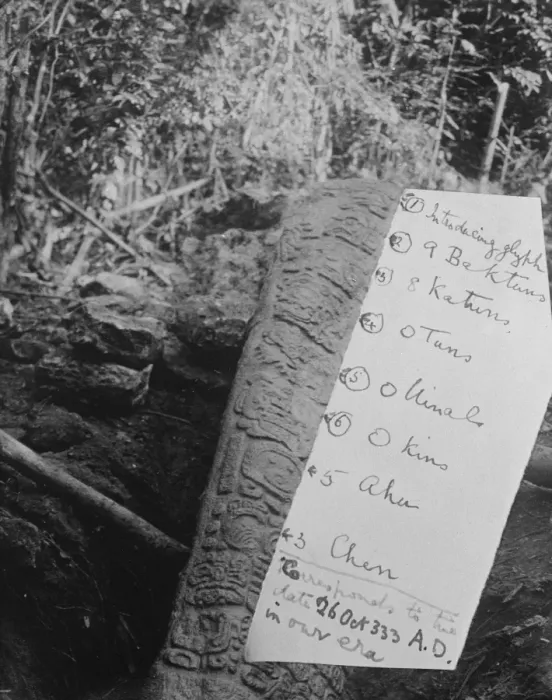 1 Introducing glyph
2 9 Baktuns
3 8 Katuns.
4 0 Tuns
5 0 Uinals
6 0 Kins
5 Ahau
3 Chen
Corresponds to the
date 26 Oct 333 A.D.
in our era